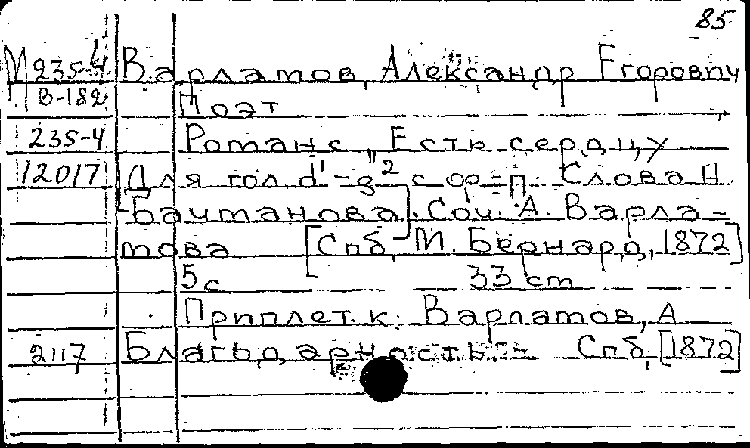 85
М 235-4 Варламов, Александр Егорович
В-182 Поэт
235-4 Романс „Есть сердцу
12017 Для гол. d'-g"2 с ф-п. Слова Н.
Бахтанова]. Соч. А. Варла-
мова [Спб, М. Бернард, 1872]
5 с 33 cm
Приплет. к: Варламов, А
2117 Благодарность. - Спб, [1872]